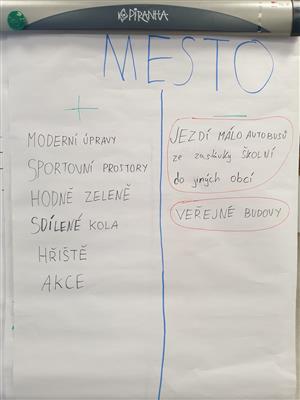 PIRANHA
MESTO
+
MODERNÍ ÚPRAVY
SPORTOVNÍ PROSTORY
HODNĚ ZELENĚ
SDÍLENÉ KOLA
HŘIŠTĚ
AKCE
—
JEZDÍ MÁLO AUTOBUSŮ
ze zastávky ŠKOLNÍ
do jiných obcí
VEŘEJNÉ BUDOVY